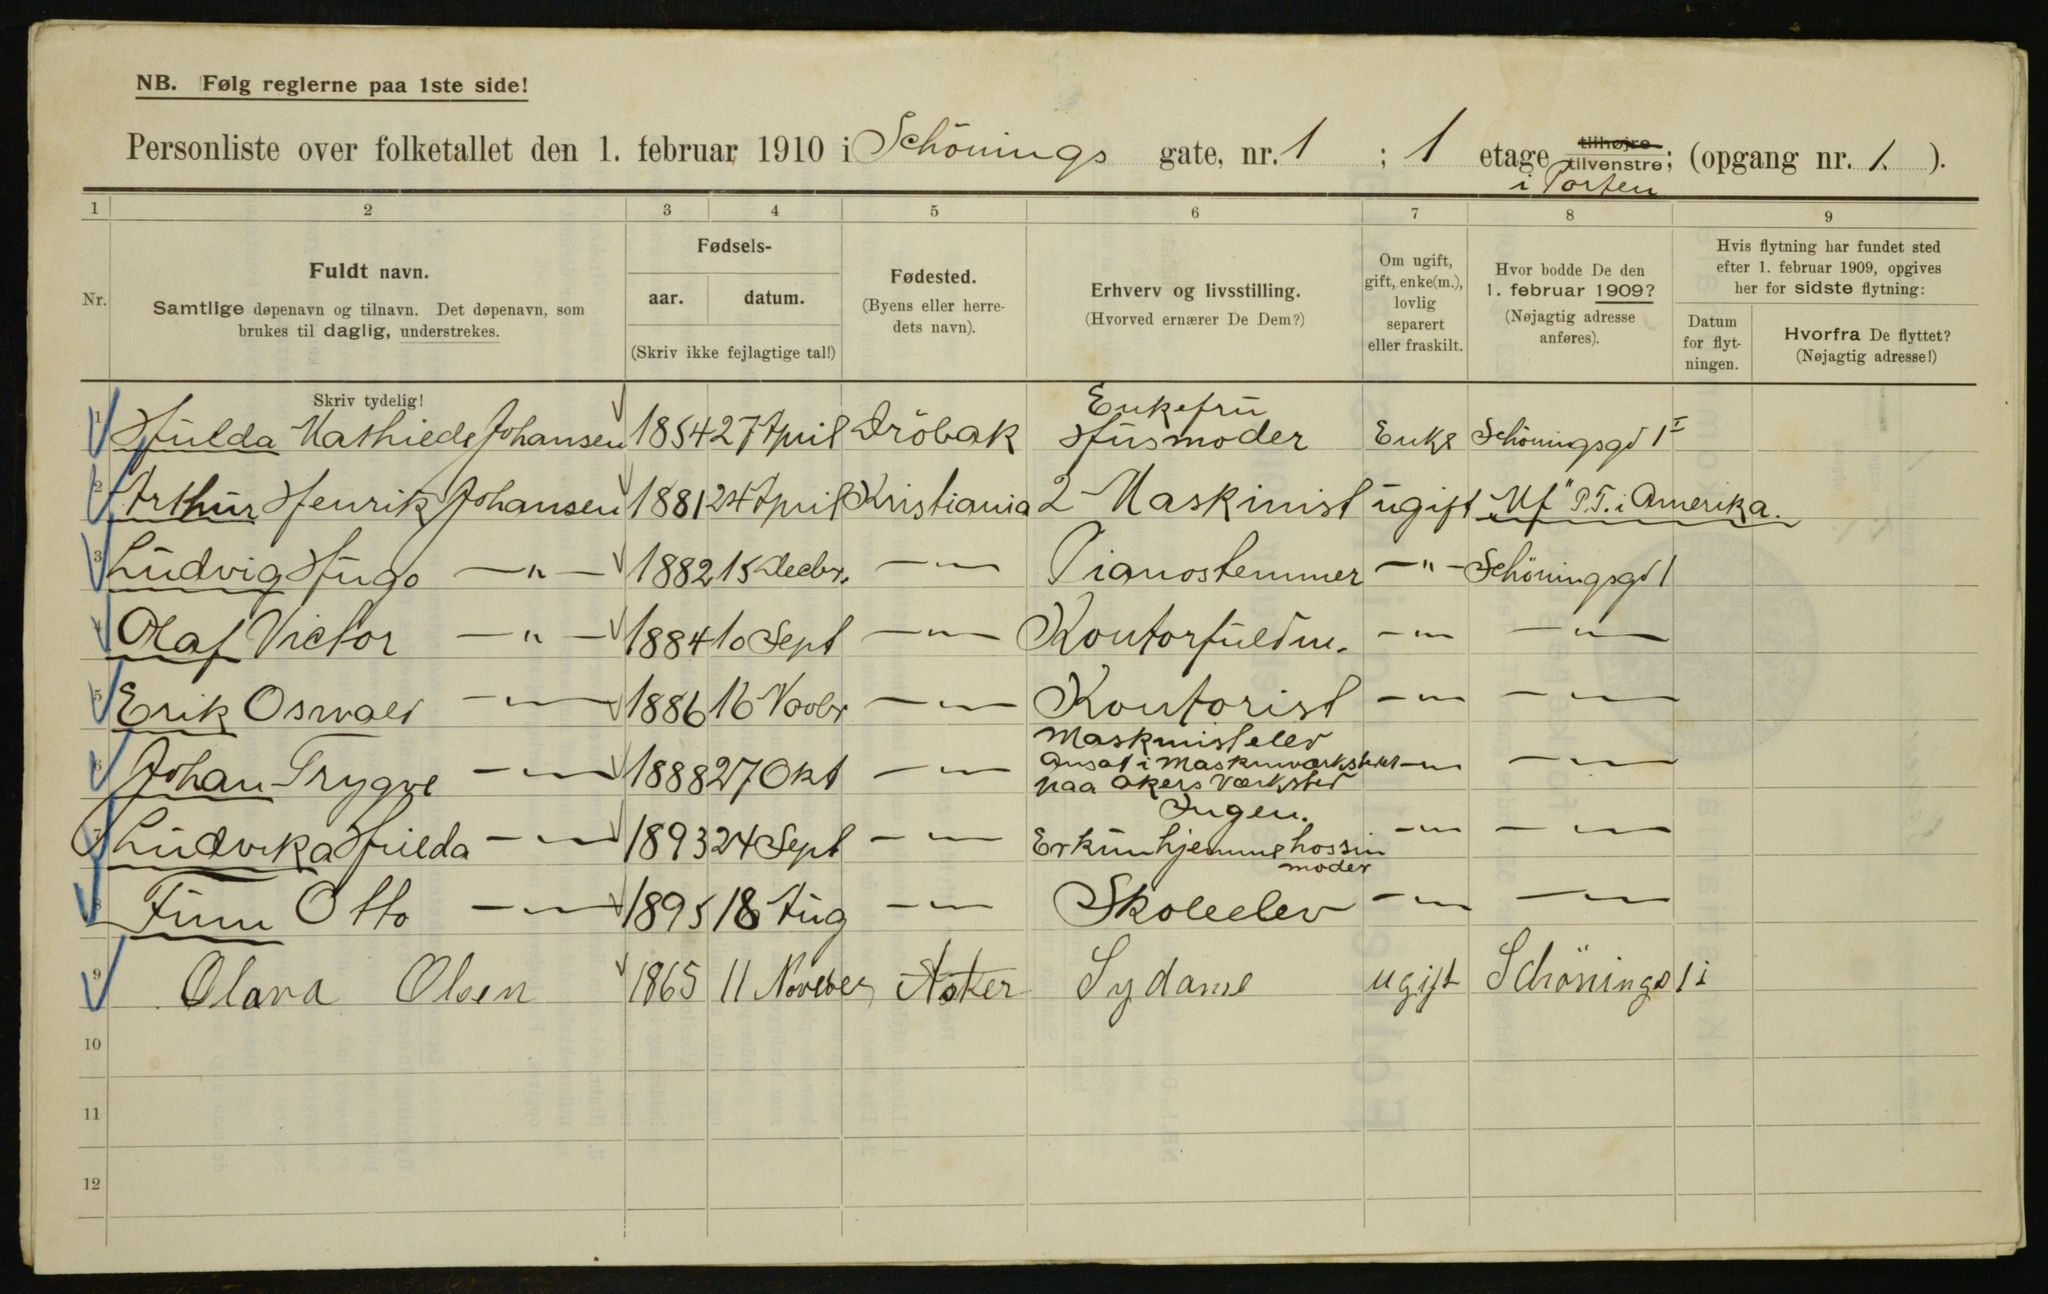 NB. Følg reglerne paa 1ste side!
Personliste over folketallet den 1. februar 1910 i Schönings gate, nr. 1 ; 1 etage tilhøjre tilvenstre; (opgang nr. 1. ).
i Porten
1 2 3 4 5 6 7 8 9
Nr.
Fuldt navn.
Samtlige døpenavn og tilnavn. Det døpenavn, som
brukes til daglig, understrekes.
Fødsels-
aar. datum.
(Skriv ikke fejlagtige tal!)
Fødested.
(Byens eller herre-
dets navn).
Erhverv og livsstilling.
(Hvorved ernærer De Dem?)
Om ugift,
gift, enke(m.),
lovlig
separert
eller fraskilt.
Hvor bodde De den
1. februar 1909?
(Nøjagtig adresse
anføres).
Hvis flytning har fundet sted
efter 1. februar 1909, opgives
her for sidste flytning:
Datum
for flyt-
ningen.
Hvorfra De flyttet?
(Nøjagtig adresse!)
Skriv tydelig!
Enkefru
1 Hulda Mathilde Johansen 1854 27 April Dröbak Husmoder Enke Schöningsgd 1 I
2 Arthur Henrik Johansen 1881 24 April Kristiania 2 Maskinist ugift P.T. i Amerika.
3 Ludvig Hugo — " — 1882 15 Decbr. — " — Pianostemmer — " — Schöningsgd 1
4 Olaf Victor — " — 1884 10 Sept — " — Kontorfuldm. — " — — " —
5 Erik Oswald — " — 1886 16 Novbr — " — Kontorist — " — — " —
Maskinistelev
6 Johan Trygve — " — 1888 27 Okt — " — Ansat i Maskinværkstedet — " — — " —
paa Akers Værksted
Ingen.
7 Ludvika Hilda — " — 1893 24 Sept — " — Er kun hjemme hos sin — " — — " —
moder
8 Finn Otto — " — 1895 18 Aug — " — Skoleelev — " — — " —
9 Olava Olsen 1865 11 November Aker Sydame ugift Schönings 1 i
10
11
12